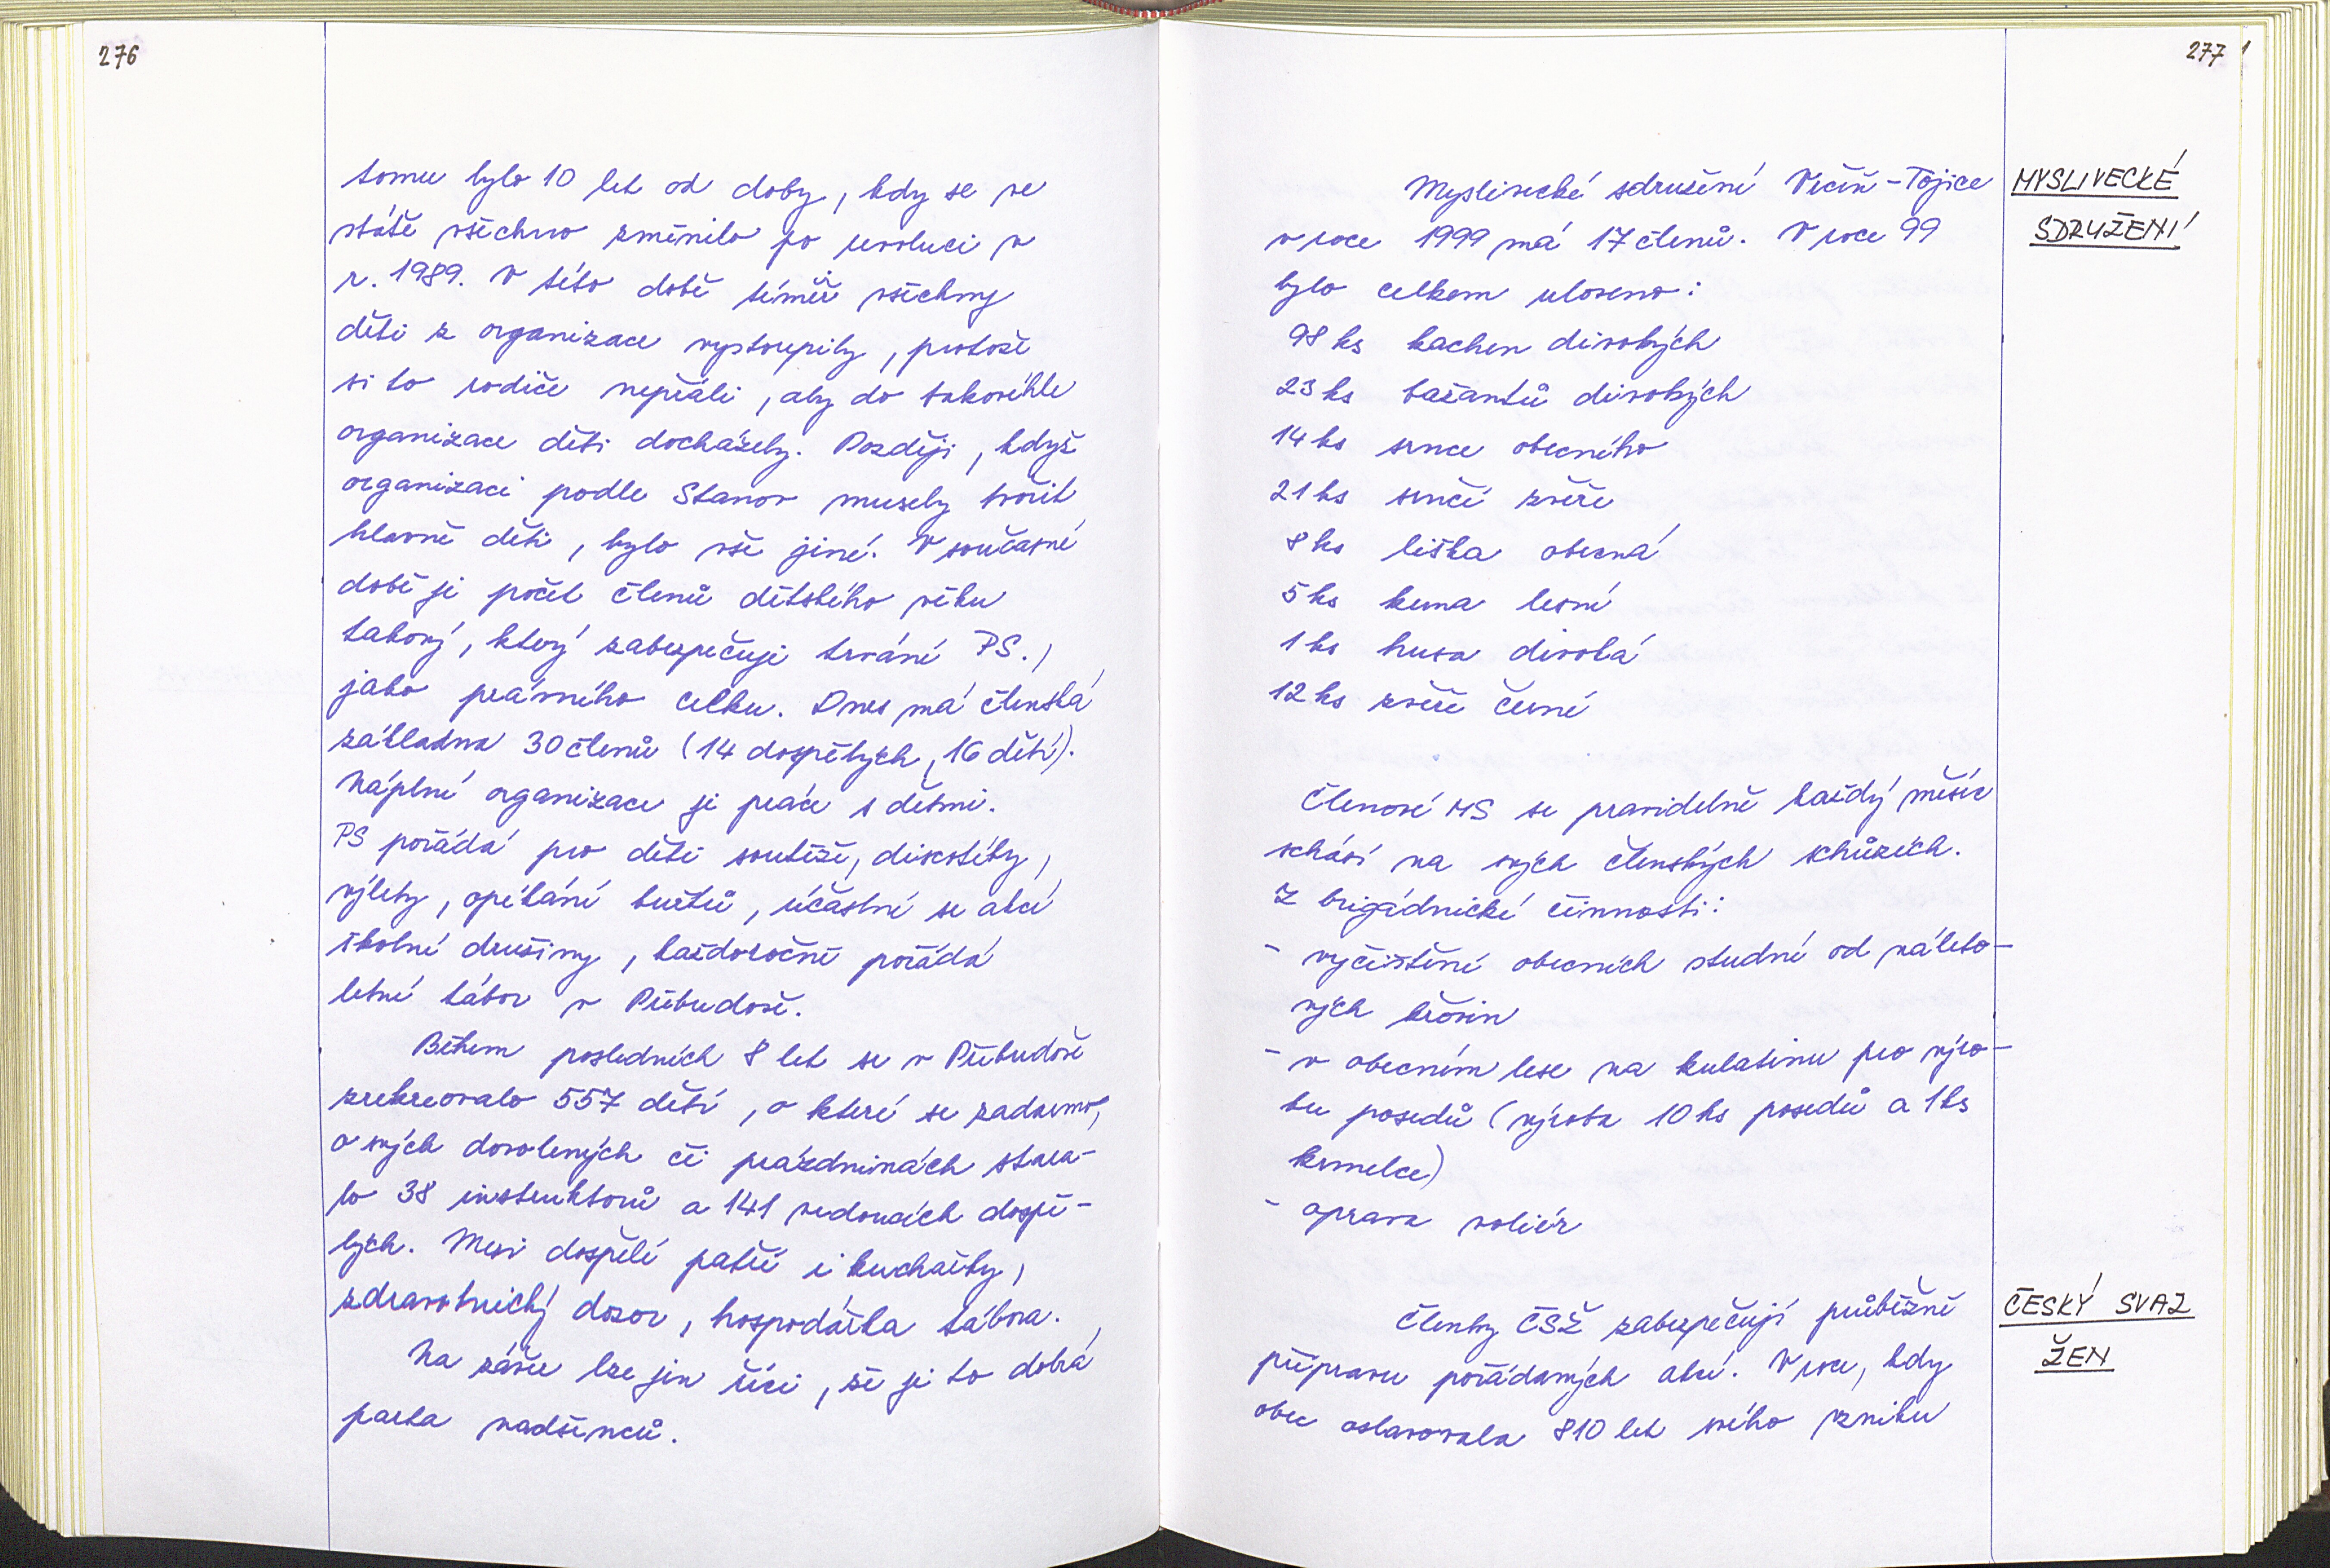 276
tomu bylo 10 let od doby, kdy se ve
státě všechno změnilo po revoluci v
r. 1989. V této době téměř všechny
děti z organizace vystoupily, protože
si to rodiče nepřáli, aby do takovéhle
organizace děti docházely. Později, když
organizaci podle Stanov musely tvořit
hlavně děti, bylo vše jiné. V současné
době je počet členů dětského věku
takový, který zabezpečuje trvání PS.,
jako právního celku. Dnes má členská
základna 30 členů (14 dospělých, 16 dětí).
Náplní organizace je práce s dětmi.
PS pořádá pro děti soutěže, diskotéky,
výlety, opékání buřtů, účastní se akcí
školní družiny, každoročně pořádá
letní tábor v Přebudově.
Během posledních 8 let se v Přebudově
zrekreovalo 557 dětí, o které se zadarmo,
o svých dovolených či prázdninách stara-
lo 38 instruktorů a 141 vedoucích dospě-
lých. Mezi dospělé patří i kuchařky,
zdravotnický dozor, hospodářka tábora.
Na závěr lze jen říci, že je to dobrá
parta nadšenců.
277
MYSLIVECKÉ
SDRUŽENÍ
Myslivecké sdružení Vrčeň - Tojice
v roce 1999 má 17 členů. V roce 99
bylo celkem uloveno:
98 ks kachen divokých
23 ks bažantů divokých
14 ks srnce obecného
21 ks srnčí zvěře
8 ks liška obecná
5 ks kuna lesní
1 ks husa divoká
12 ks zvěře černé
Členové MS se pravidelně každý měsíc
schází na svých členských schůzích.
Z brigádnické činnosti:
- vyčištění obecních studní od náleto-
vých křovin
- v obecním lese na kulatinu pro výro-
bu posedů (výroba 10 ks posedů a 1 ks
krmelce)
- oprava voliér
ČESKÝ SVAZ
ŽEN
Členky ČSŽ zabezpečují průběžně
přípravu pořádaných akcí. V roce, kdy
obec oslavovala 810 let svého vzniku